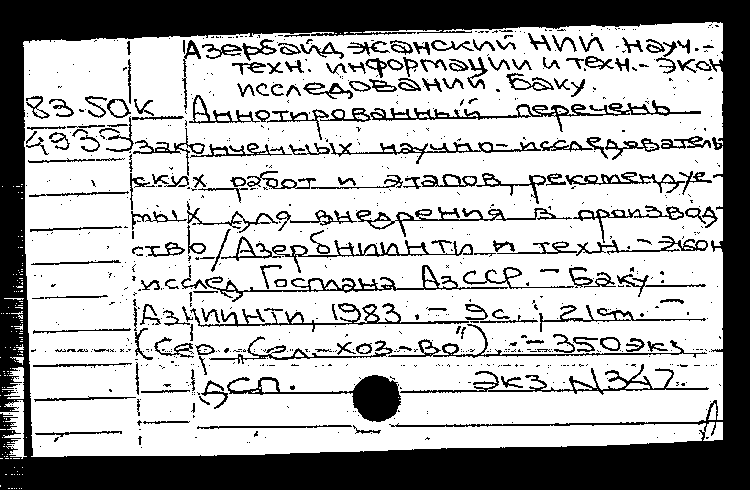 Азербайджанский НИИ науч.-
техн. информации и техн.-экон
исследований. Баку.
83-50К Аннотированный перечень
4933 законченных научно-исследователь
ских работ и этапов, рекомендуе-
мых для внедрения в производ-
ство / АзербНИИНТИ и техн.-экон
исслед. Госплана АзССР. - Баку:
АзНИИНТИ, 1983. - 9с.; 21см. -
(Сер. „Сел.-хоз-во"). - 350экз.
ДСП. Экз. N347.